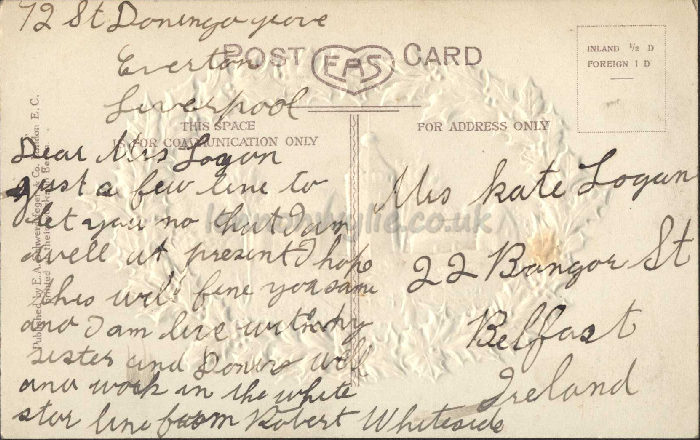 72 St Domingo grove
Everton
Liverpool
POST CARD
EAS
INLAND ½ D
FOREIGN 1 D
THIS SPACE
IS FOR COMMUNICATION ONLY
FOR ADDRESS ONLY
Dear Mrs Logan
just a few line to
let you no that I am
well at present I hope
this will fine you same
and I am live with my
sister and Doning well
and work in the white
star line from Robert Whiteside
Mrs Kate Logan
22 Bangor St
Belfast
Ireland
Published by E. A. Schwerdtfeger & Co. London E. C.
Printed at their Works in Berlin